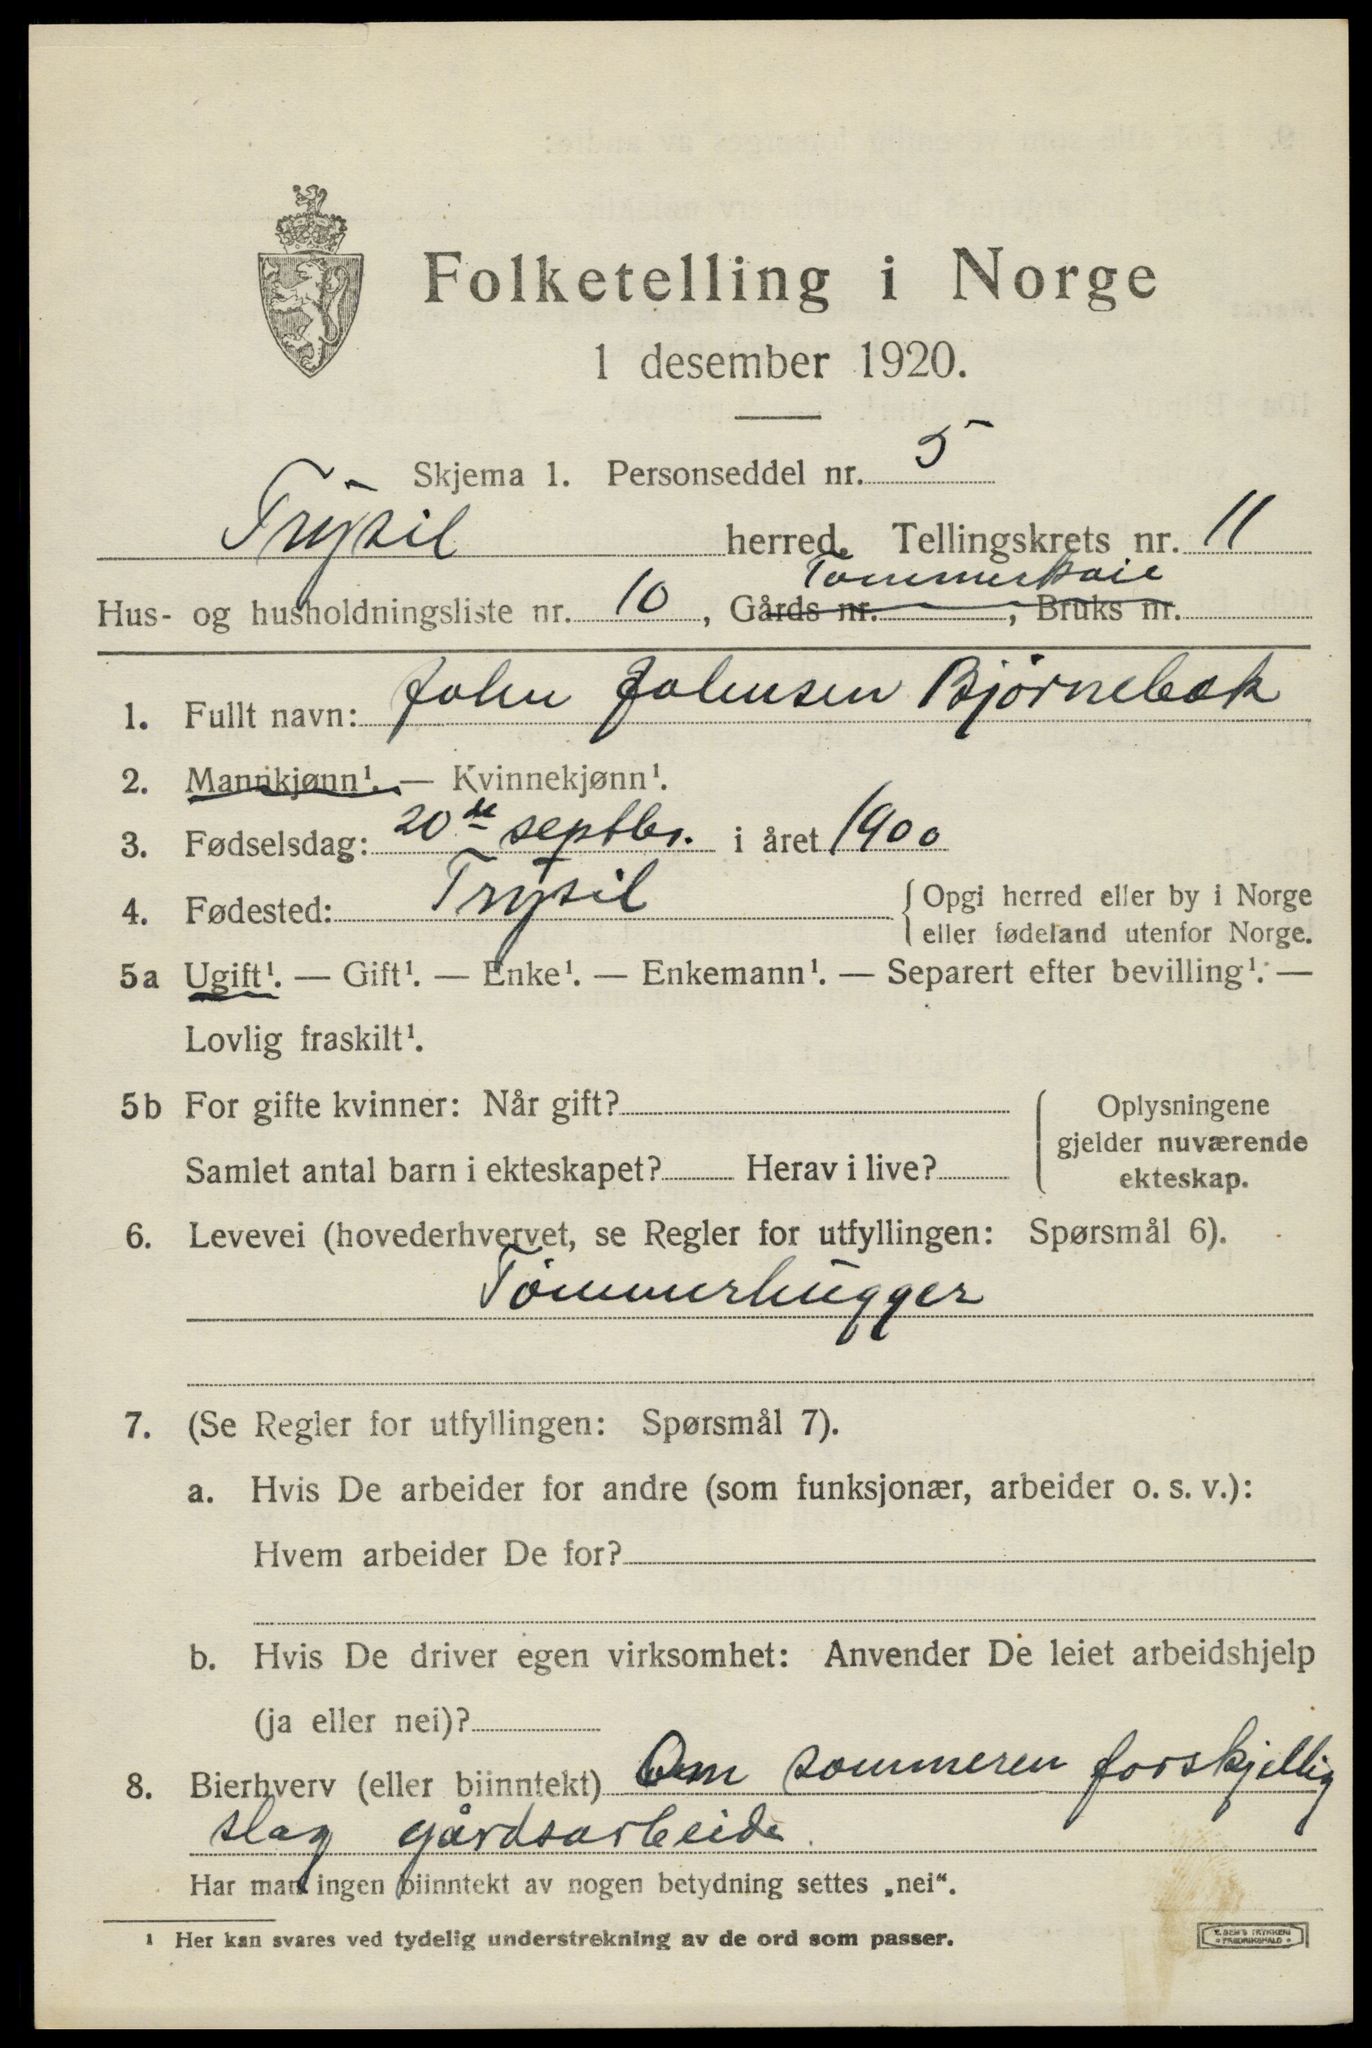 Folketelling i Norge
1 desember 1920.
Skjema 1. Personseddel nr. 5
Trysil herred. Tellingskrets nr. 11
Tømmerkoie
Hus- og husholdningsliste nr. 10, Gårds nr. , Bruks nr.
1. Fullt navn: John Johnsen Bjørnebæk
2. Mannkjønn¹. — Kvinnekjønn¹.
3. Fødselsdag: 20de septbr. i året 1900
4. Fødested: Trysil { Opgi herred eller by i Norge
eller fødeland utenfor Norge.
5a Ugift¹. — Gift¹. — Enke¹. — Enkemann¹. — Separert efter bevilling¹. —
Lovlig fraskilt¹.
5b For gifte kvinner: Når gift? { Oplysningene
gjelder nuværende
Samlet antal barn i ekteskapet? Herav i live? ekteskap.
6. Levevei (hovederhvervet, se Regler for utfyllingen: Spørsmål 6).
Tømmerhugger
7. (Se Regler for utfyllingen: Spørsmål 7).
a. Hvis De arbeider for andre (som funksjonær, arbeider o. s. v.):
Hvem arbeider De for?
b. Hvis De driver egen virksomhet: Anvender De leiet arbeidshjelp
(ja eller nei)?
8. Bierhverv (eller biinntekt) Om sommeren forskjellig
slag gårdsarbeide.
Har man ingen biinntekt av nogen betydning settes „nei“.
¹ Her kan svares ved tydelig understrekning av de ord som passer.
E. SEM'S TRYKKERI
FREDRIKSHALD